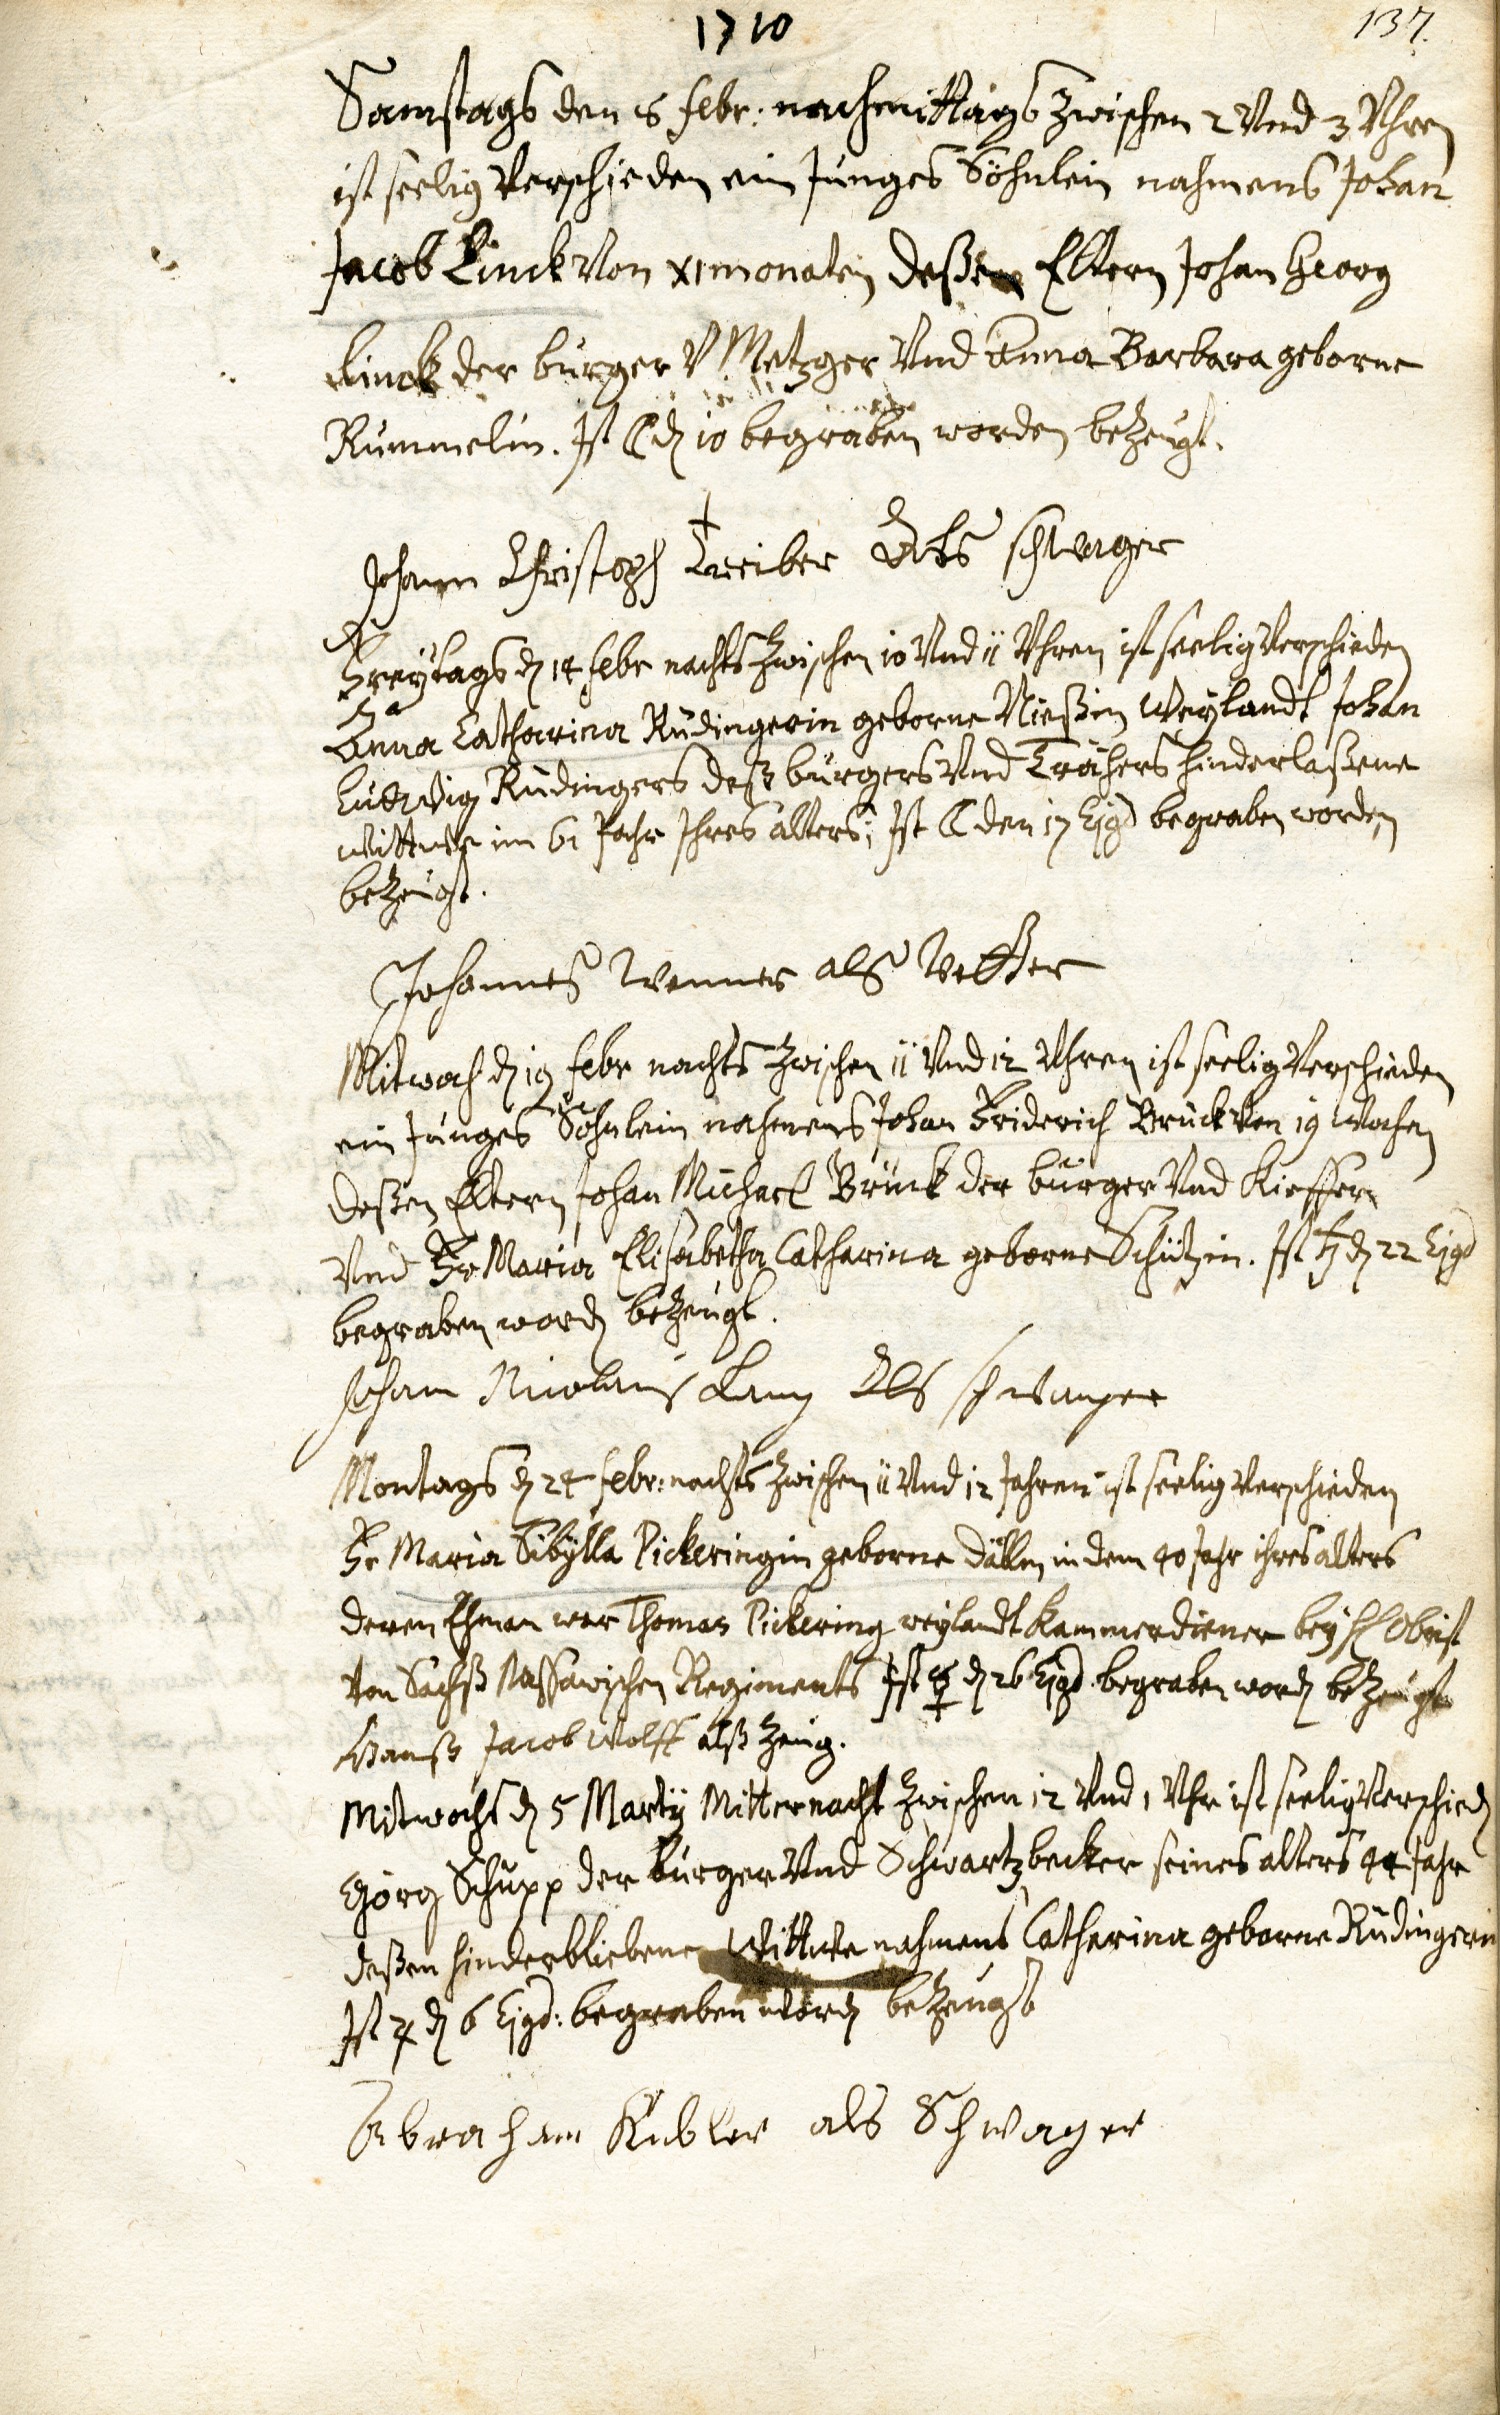 1710
137.
Samstags den 8 febr: nachmittags zwischen 2 Vnd 3 Vhren
ist seelig Verschieden ein Junges Söhnlein nahmens Johan
Jacob Linck Von XI monaten deßen Eltern Johan Georg
Linck der burger V Metzger Vnd Anna Barbara geborne
Rummelin. Ist ☾ dẽ 10 begraben worden bezeugt.
Johann Christoph Treiber Als schwager
Freytags dẽ 14 febr nachts zwischen 10 Vnd 11 Vhren ist seelig Verschieden
Anna Catharina Rüdingerin geborne Nießin Weylandt Johan
Ludtwig Rüdingers deß burgers Vnd Trähers hinderlaßene
wittwe im 61 Jahr Ihres alters; Ist ☾ den 17 Ejgd begraben worden
bezeugt.
Johannes Wenner als Vetter
Mitwoch dẽ 19 febr nachts zwischen 11 Vnd 12 Vhren ist seelig Verschieden
ein Junges Söhnlein nahmens Johan Friderich Brück Von 19 Wochen
deßen Eltern Johan Michael Brück der burger Vnd Kieffer
Vnd Fr Maria Elisabetha Catharina geborne Schützin. Ist ♄ dẽ 22 Ejgd
begraben wordẽ bezeugt.
Johann Nicolaus Lang Als schwager
Montags dẽ 24 febr: nachts zwischen 11 Vnd 12 Jahren ist seelig Verschieden
Fr Maria Sibÿlla Pickeringin geborne Dällin in dem 40 Jahr ihres alters
deren Ehman war Thomas Pickering weylandt Kammerdiener bey H Obrist
Von Sachß Nassawischen Regiments Ist ☿ dẽ 26 Ejgd. begraben wordẽ bezeugt
Hanß Jacob Wolff alß zeug.
Mitwochs dẽ 5 Martÿ Mitternacht zwischen 12 Vnd 1 Vhr ist seelig Verschiedẽ
Görg Schupp der burger Vnd Schwartzbecker seines alters 44 Jahr
deßen hinderbliebene Wittwe nahmens Catharina geborne Rüdingerin
Ist ♃ dẽ 6 Ejgd: begraben wordẽ bezeugt
Abraham Kübler als Schwager